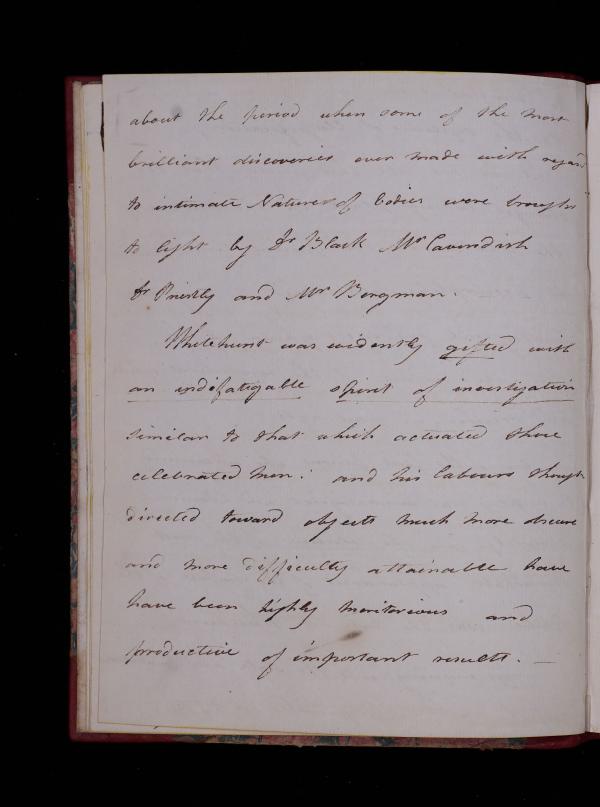 about the period when some of the most
brilliant discoveries ever made with regard
to intimate Natures of bodies were brought
to light by Dr Black Mr Cavendish
Dr Priestly and Mr Bergman.
Whitehurst was evidently gifted with
an indefatigable spirit of investigation
similar to that which actuated those
celebrated men: and his labours though
directed toward objects much more obscure
and more difficultly attainable have
have been highly meritorious and
productive of important results. —